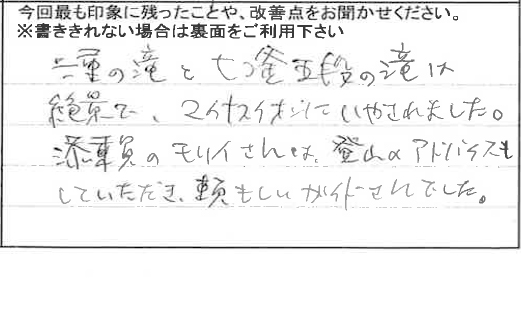 今回最も印象に残ったことや、改善点をお聞かせください。
※書ききれない場合は裏面をご利用下さい
三重の滝と七つ釜五段の滝は
絶景で、マイナスイオンにいやされました。
添乗員のモリイさんは、登山のアドバイスも
していただき、頼もしいガイドさんでした。